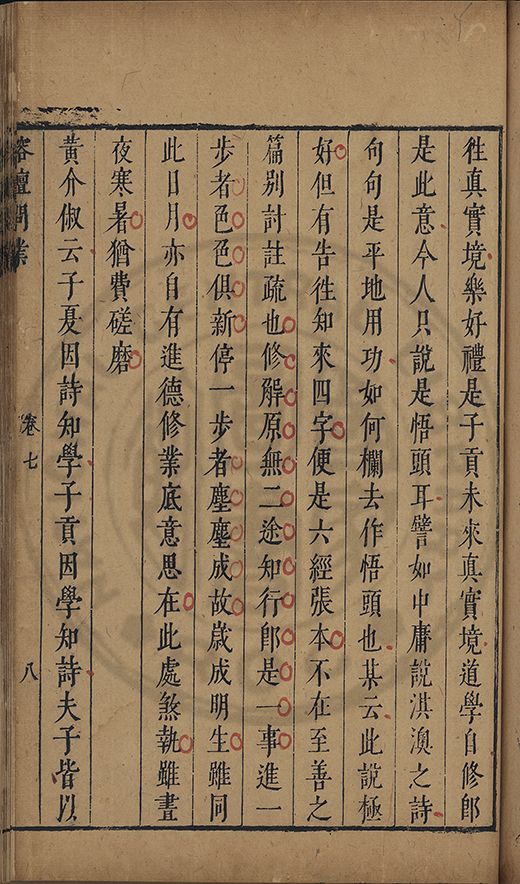 徃真實境樂好禮是子貢未來真實境道學自修郎
是此意今人只說是悟頭耳譬如中庸說淇澳之詩
句句是平地用功如何欄去作悟頭也某云此說極
好但有告徃知來四字便是六經張本不在至善之
篇別計註疏也修解原無二途知行郎是一事進一
步者色色俱新停一步者塵塵成故歲成明生雖同
此日月亦自有進德修業底意思在此處煞執雖晝
夜寒暑猶費磋磨
黃介俶云子夏因詩知學子貢因學知詩夫子皆以
榕壇問業
卷七
八